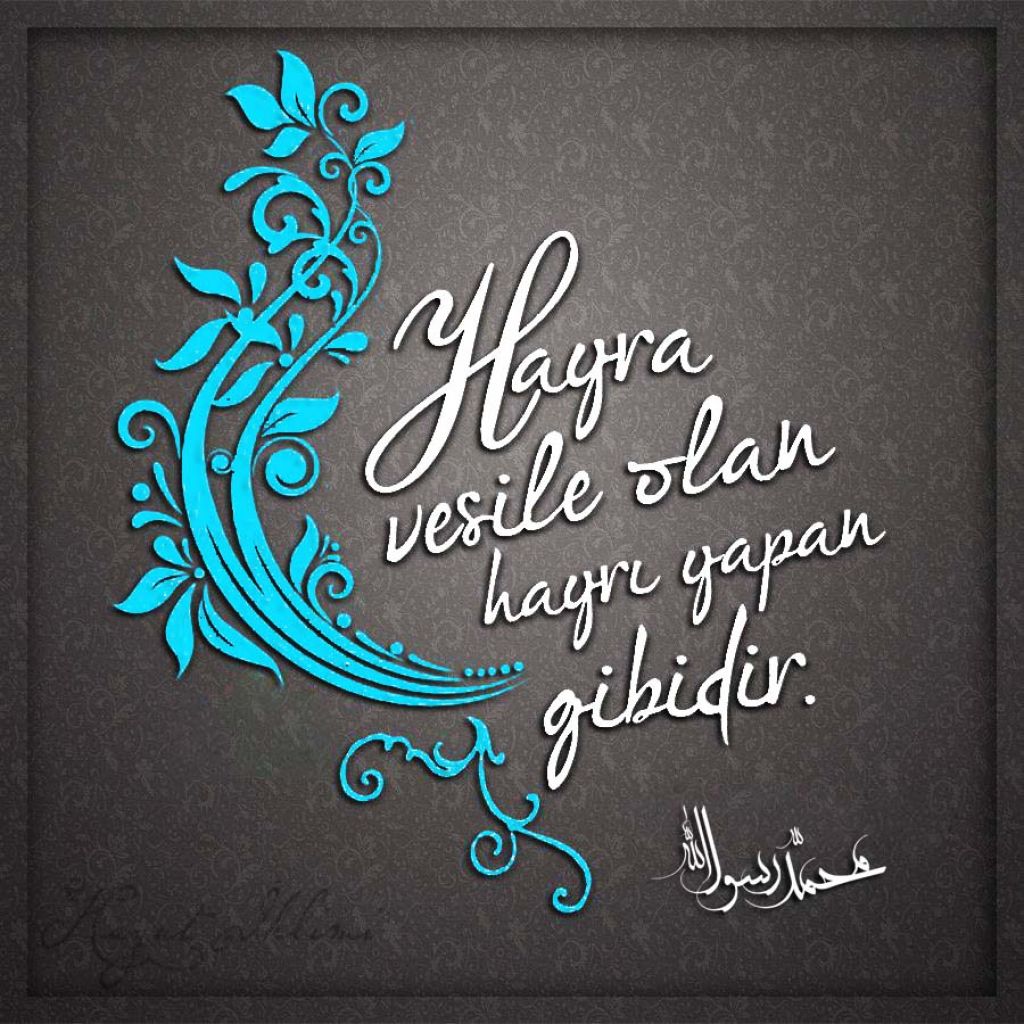 Hayra
vesile olan
hayrı yapan
gibidir.
محمد رسول الله